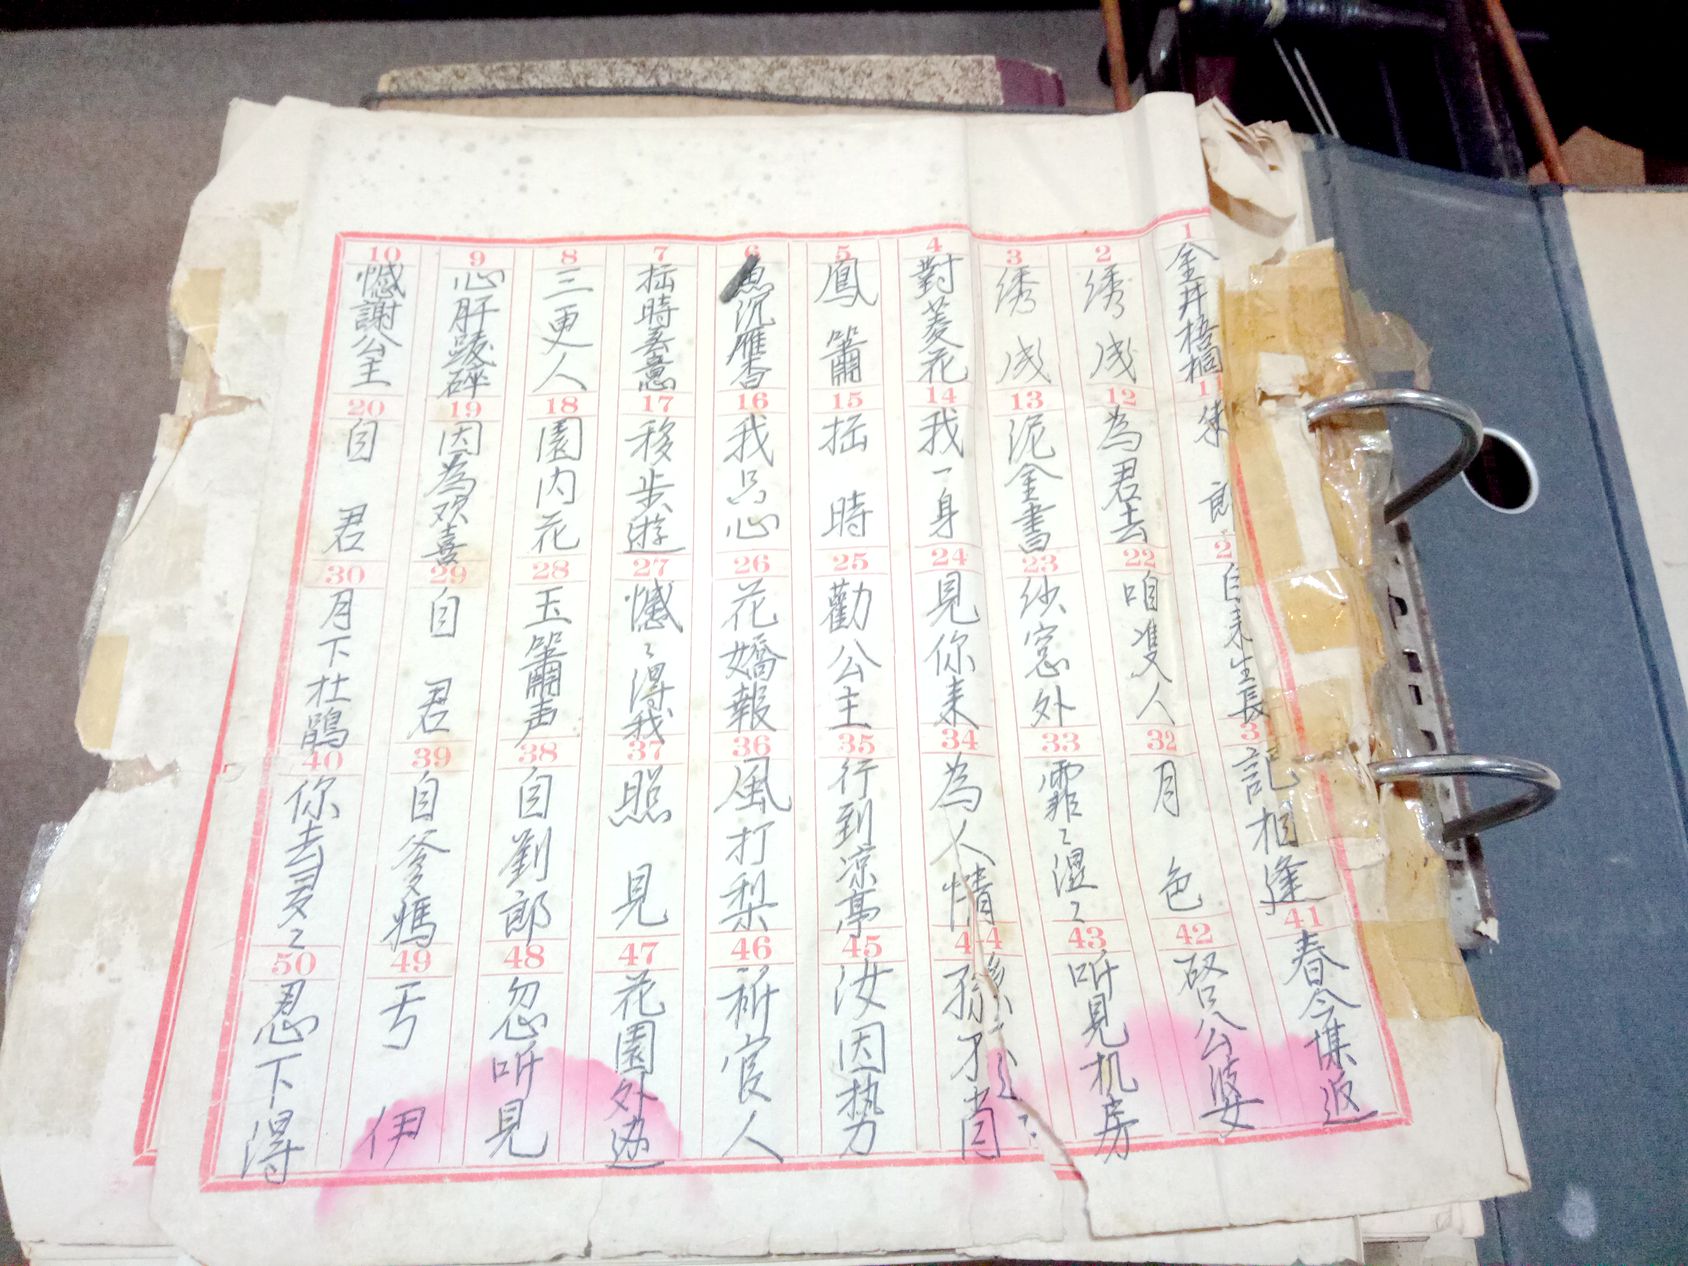 1 金井梧桐
2 绣成
3 绣成
4 對菱花
5 鳳簫
6 魚沉雁杳
7 時
8 三更人
9 心肝
10 憾謝公主
11 郎
12 為君去
13 泥金書
14 我一身
15 時
16 我只心
17 移步遊
18 園内花
19 因為欢喜
20 自君
2 自来生長
22 咱隻人
23 纱窓外
24 見你来
25 勸公主
26 花嬌報
27 憾〻得我
28 玉簫声
29 自君
30 月下杜鵑
3 記相逢
32 月色
33 霏〻濕〻
34 為人情
35 行到凉亭
36 風打梨
37 照見
38 自劉郎
39 自爹媽
40 你去多〻
41 春今谋返
42 啓公婆
43 听見机房
44
45 汝因
46 祈官人
47 花園外边
48 忽听見
49 伊
50 忍下得